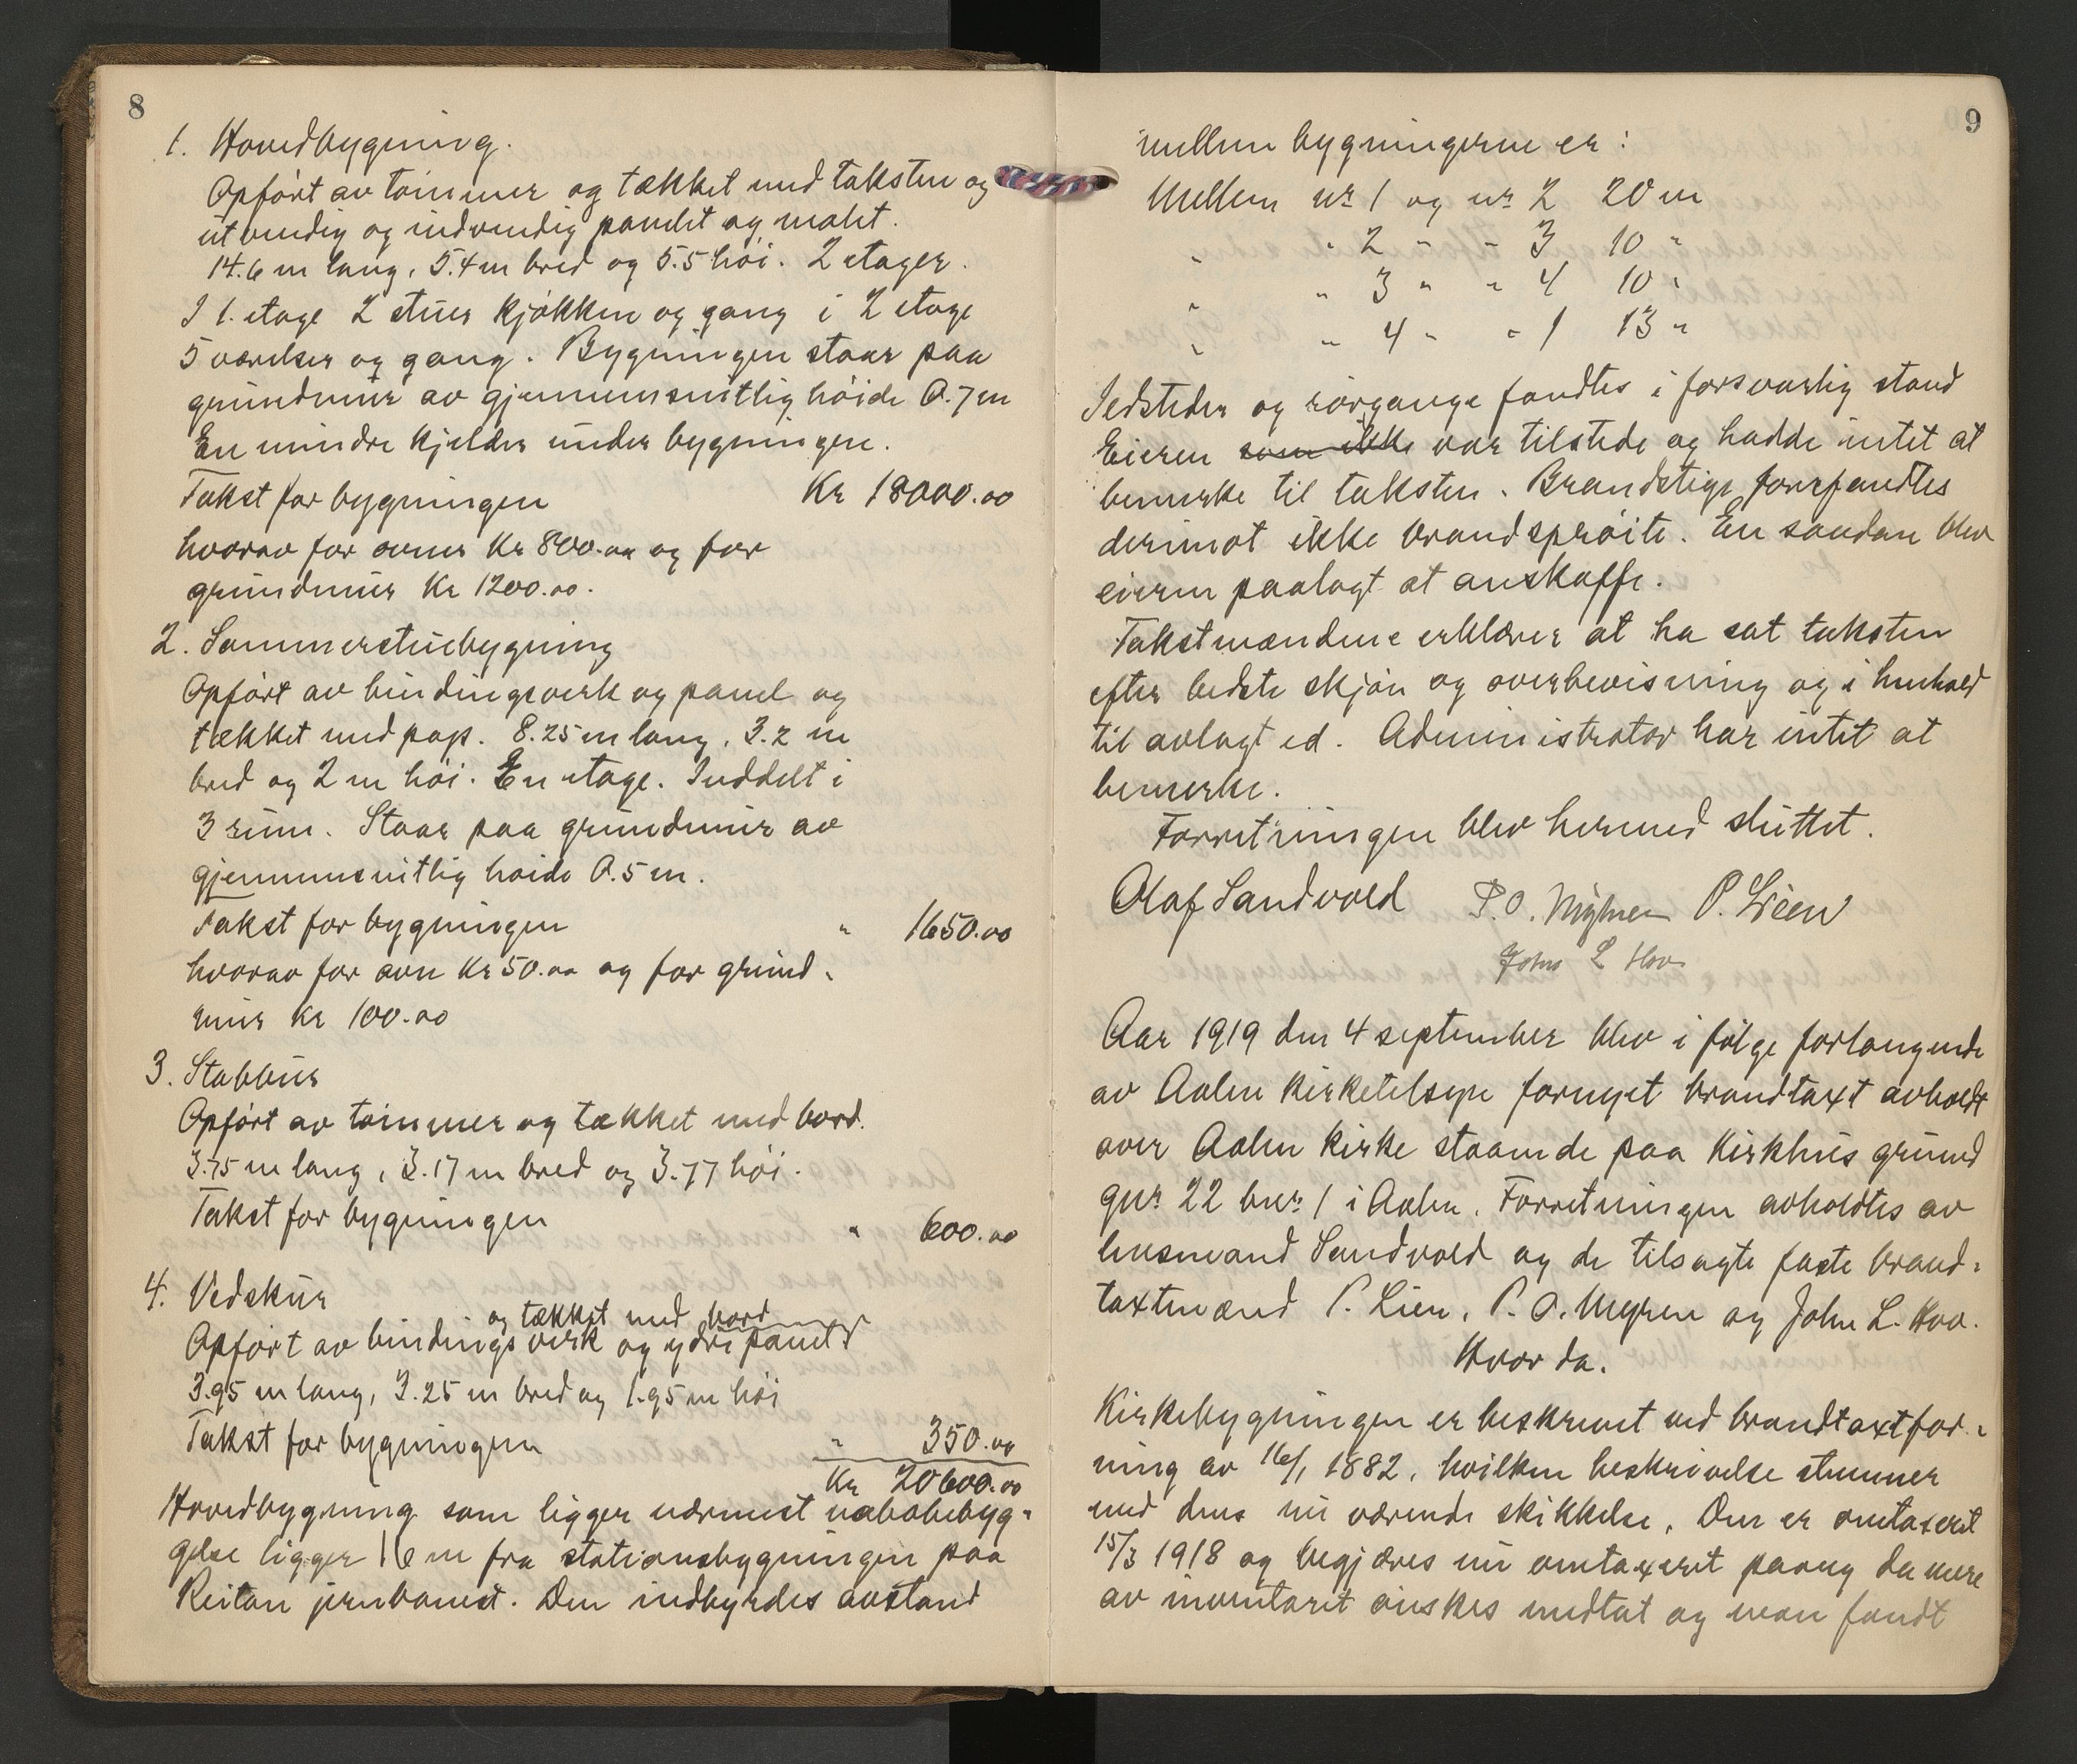 8
1. Hovedbygning.
Opført av tømmer og tækket med taksten og
utvendig og indvendig panelt og malet.
14.6 m lang, 5.4 m bred og 5.5 høi. 2 etager.
I 1. etage 2 stuer kjøkken og gang i 2 etage
5 værelser og gang. Bygningen staar paa
grundmur av gjennemsnitlig høide 0.7 m
En mindre kjelder under bygningen.
Takst for bygningen Kr 18000.00
hvorav for ovner Kr 800.00 og for
grundmur Kr 1200.00.
2. Sommerstuebygning
Opført av bindingsverk og panel og
tækket med pap. 8.25 m lang, 3.2 m
bred og 2 m høi. En etage. Inddelt i
3 rum. Staar paa grundmur av
gjennemsnitlig høide 0.5 m.
Takst for bygningen " 1650.00
hvorav for ovn Kr 50.00 og for grund-
mur Kr 100.00
3. Stabbur
Opført av tømmer og tækket med bord.
3.75 m lang, 3.17 m bred og 3.77 høi.
Takst for bygningen " 600.00
4. Vedskur
og tækket med bord
Opført av bindingsverk og ydre panel
3.95 m lang, 3.25 m bred og 1.95 m høi
Takst for bygningen " 350.00
Kr 20600.00
Hovedbygning som ligger nærmest nabobebyg-
gelse ligger 16 m fra stationsbygningen paa
Reitan jernbanest. Den indbyrdes avstand
9
mellem bygningerne er:
Mellem nr 1 og nr 2 20 m
" " 2 " " 3 10 "
" " 3 " " 4 10 "
" " 4 " " 1 13 "
Ildsteder og rørgange fandtes i forsvarlig stand
Eieren som ikke var tilstede og hadde intet at
bemerke til taksten. Brandstige forefandtes
derimot ikke brandsprøite. En saadan blev
eieren paalagt at anskaffe.
Takstmændene erklærer at ha sat taksten
efter bedste skjøn og overbevisning og i henhold
til avlagt ed. Administrator har intet at
bemerke.
Forretningen blev hermed sluttet.
Olaf Sandvold P. O. Myhren P. Lien
John L Hov
Aar 1919 den 4 september blev i følge forlangende
av Aalen kirketilsyn fornyet brandtaxt avholdt
over Aalen kirke staaende paa Kirkhus grund
gnr 22 bnr 1 i Aalen. Forretningen avholdtes av
lensmand Sandvold og de tilsagte faste brand-
taxtmænd P. Lien, P. O. Myren og John L. Hov.
Hvor da.
Kirkebygningen er beskrevet ved brandtaxtfor-
ning av 16/1 1882, hvilken beskrivelse stemmer
med dens nu værende skikkelse. Den er omtaxeret
15/3 1918 og begjæres nu omtaxeret paany da mere
av inventaret ønskes medtat og man fandt